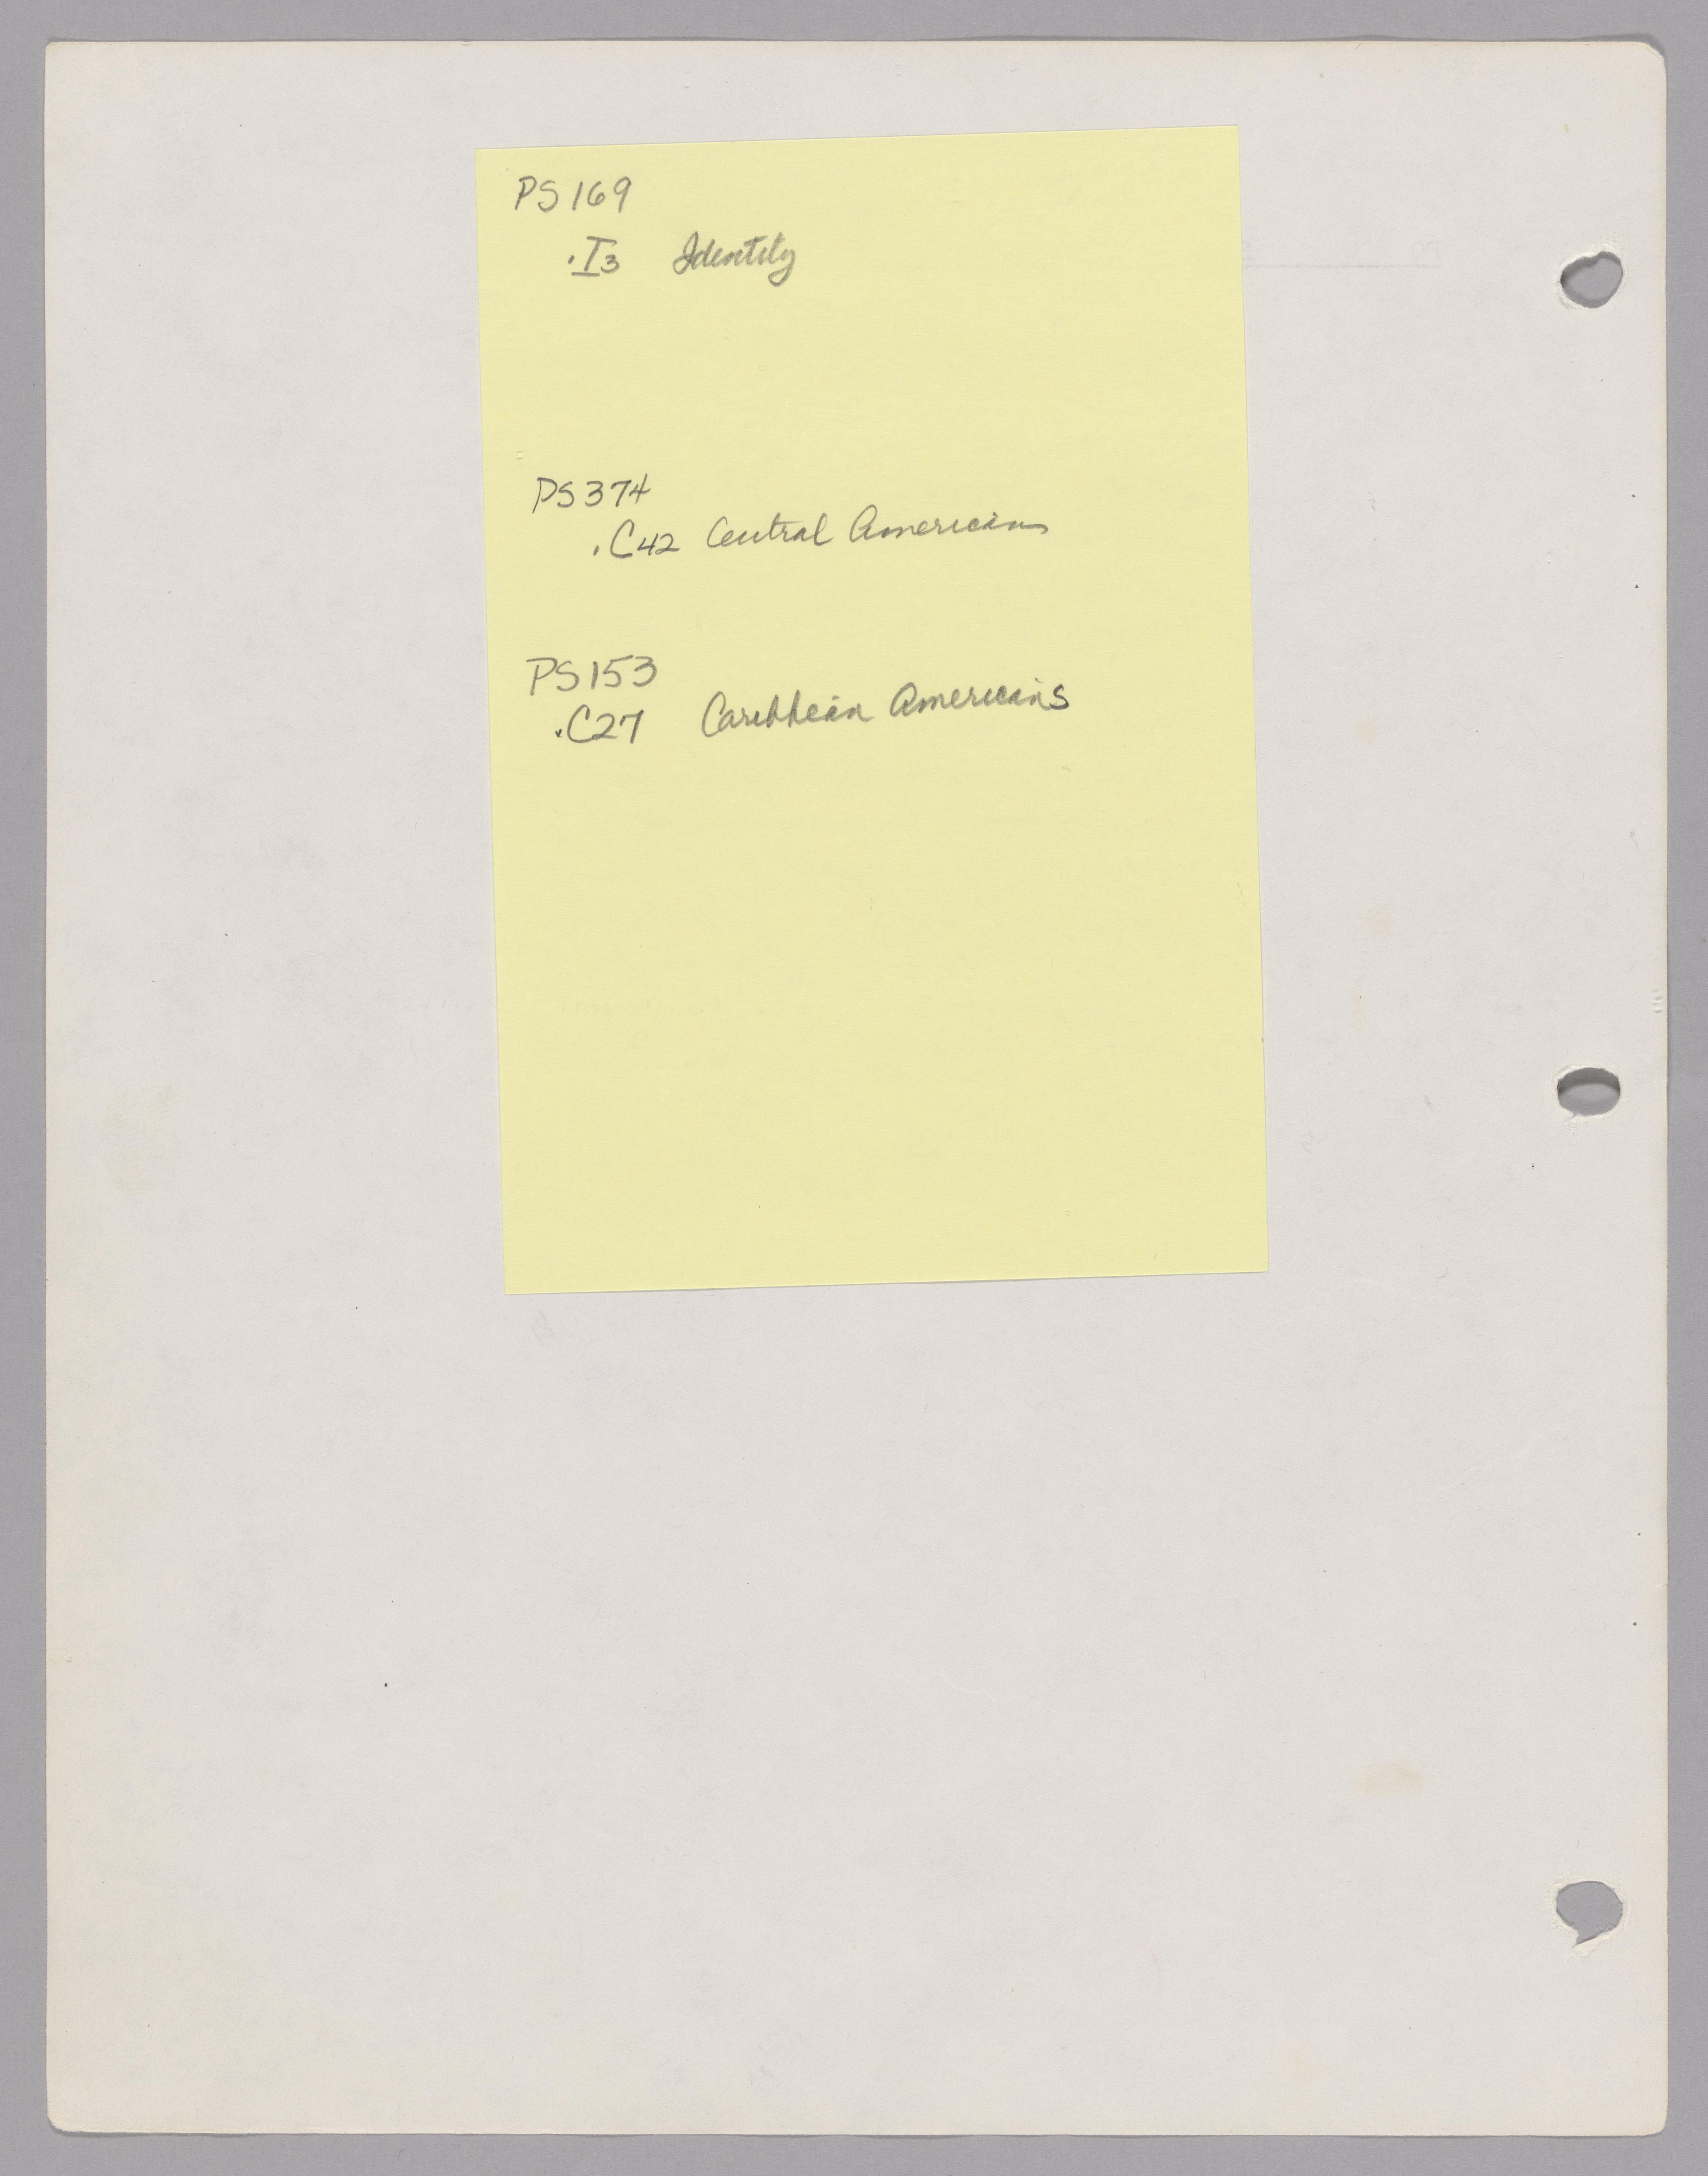 PS169
.I3 Identity
PS374
.C42 Central Americans
PS153
.C27 Caribbean Americans